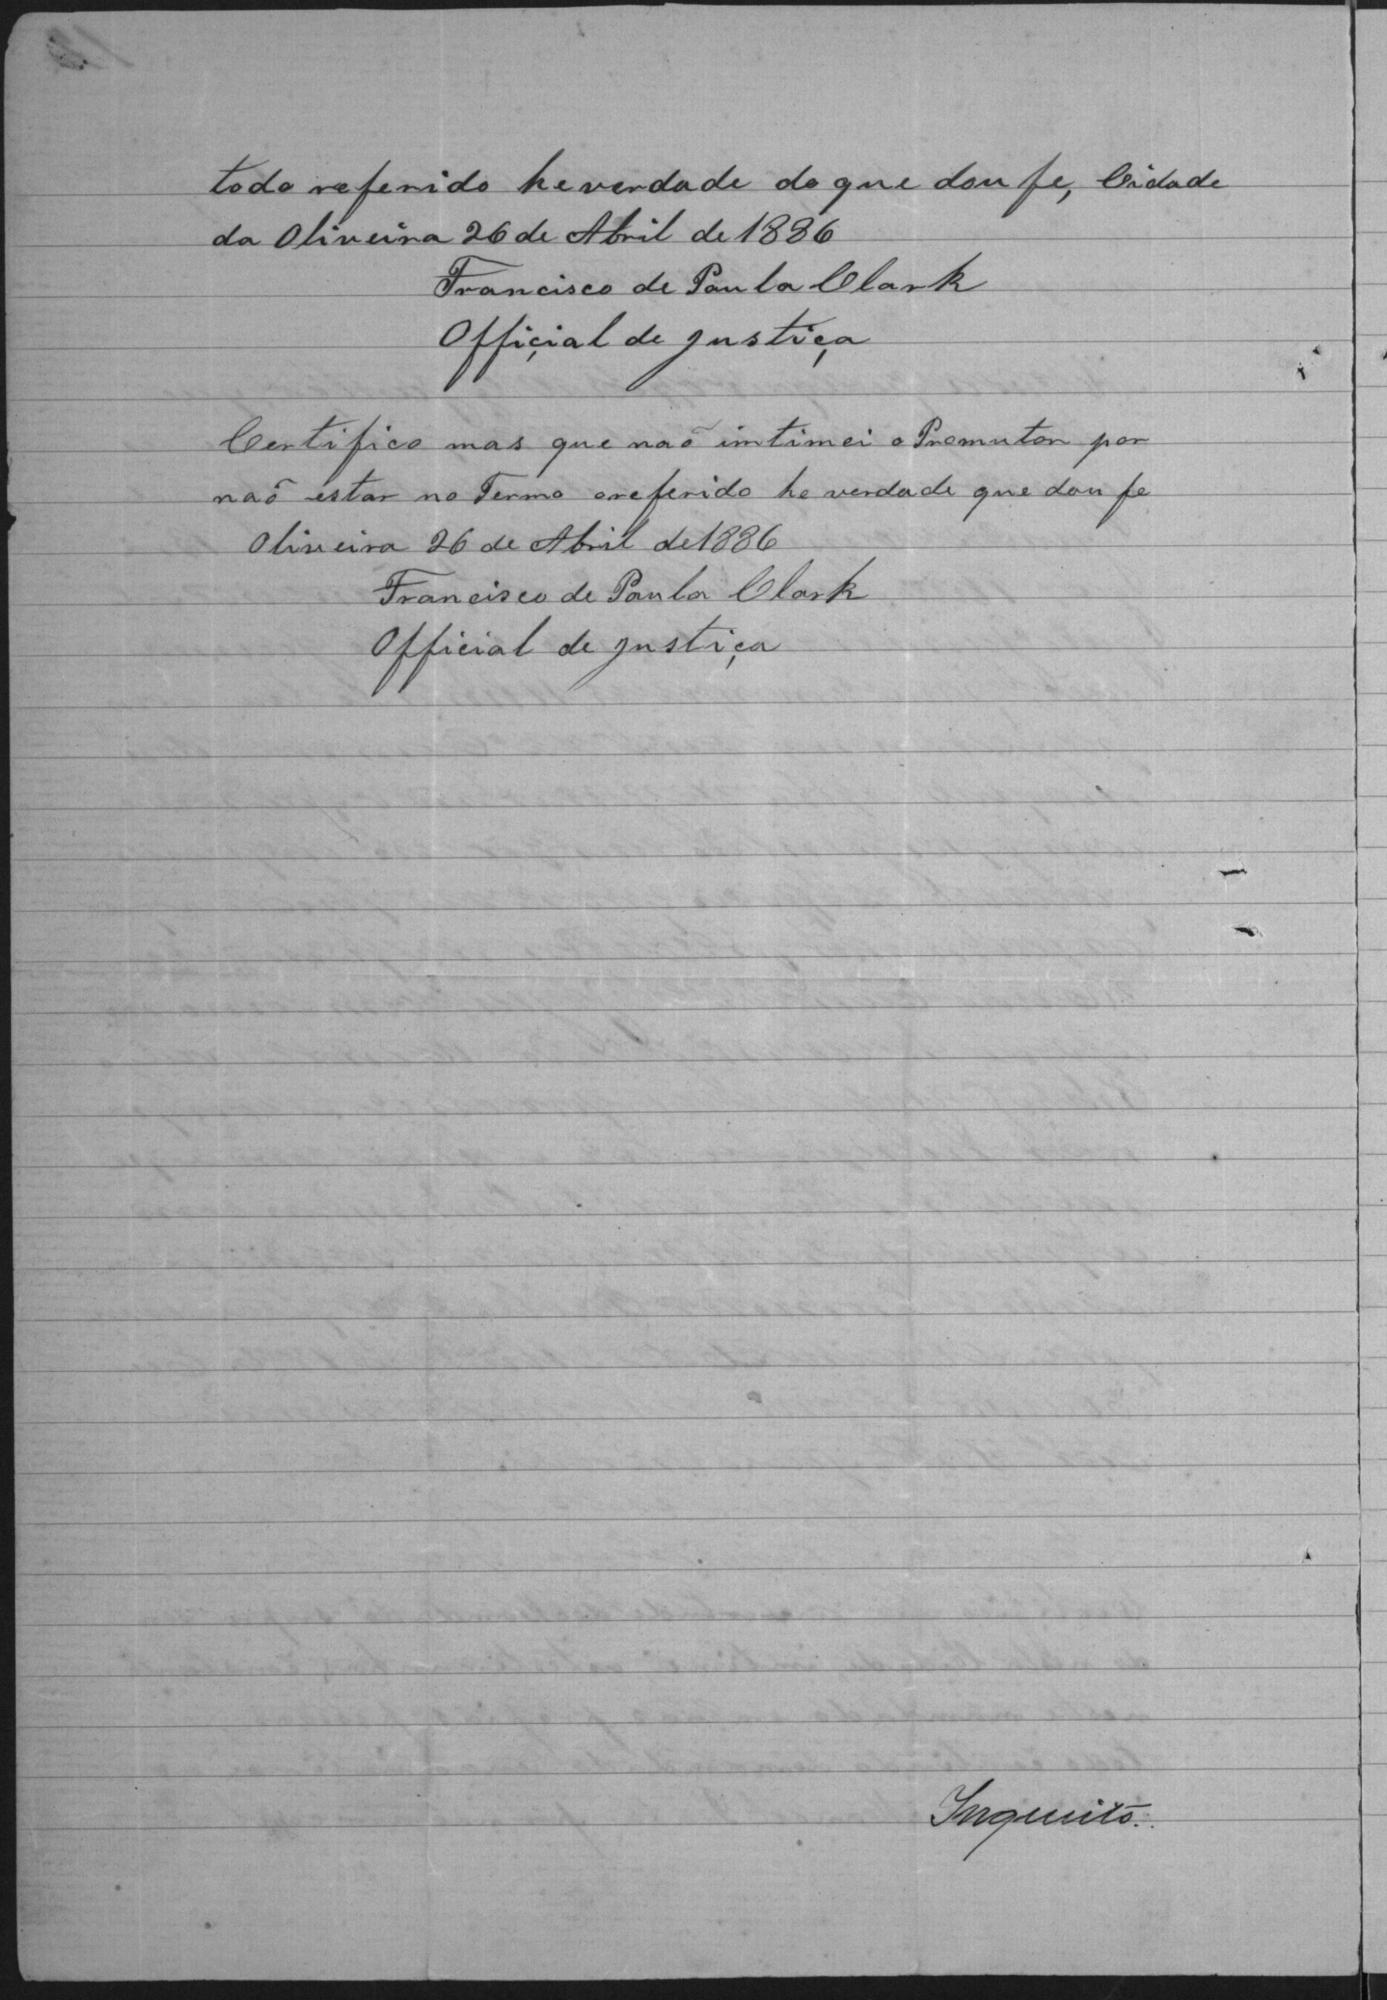 todo referido he verdade do que dou fe, Cidade
da Oliveira 26 de Abril de 1886
Francisco de Paula Clark
Offiçial de justiça
Certifico mas que naõ intimei o Promutor por
naõ estar no Termo o referido he verdade que dou fe
Oliveira 26 de Abril de 1886
Francisco de Paula Clark
Official de justiça
Inquirito.